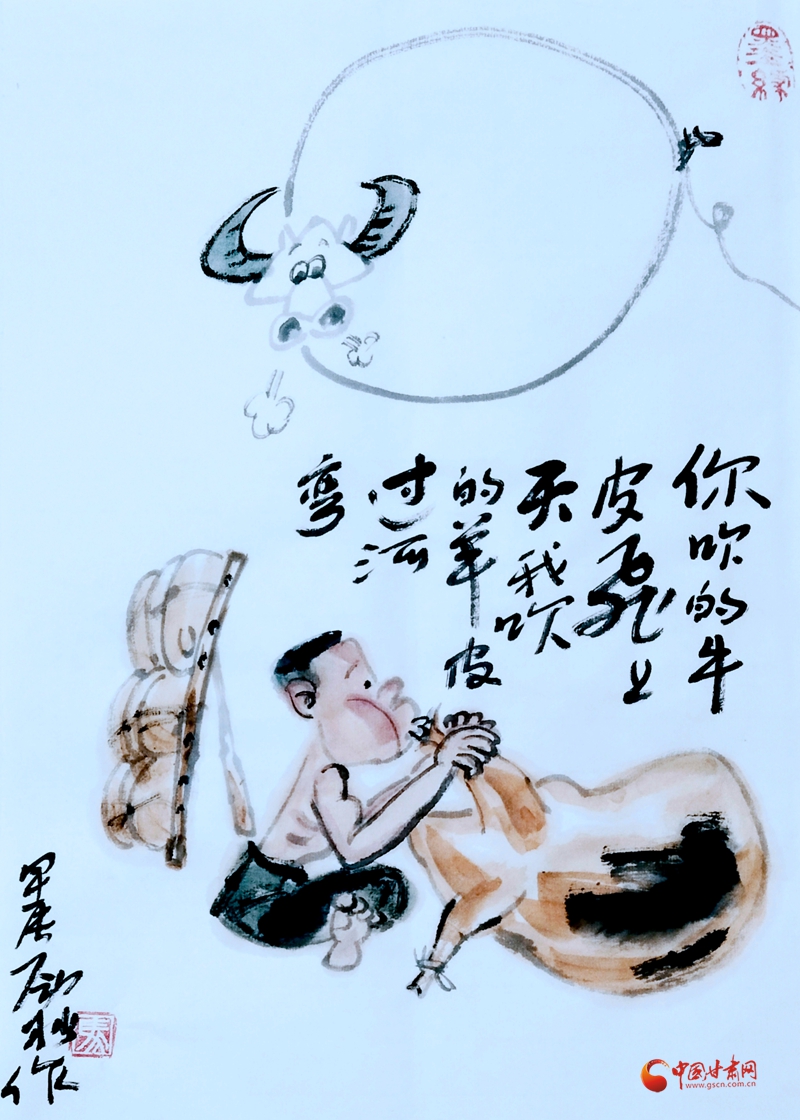 你吹的牛
皮飞上
天我吹
的羊皮
过河
弯
作
中国甘肃网
www.gscn.com.cn